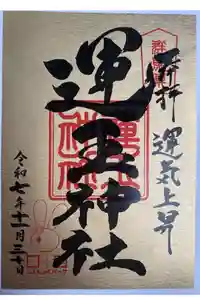 奉拝
運気上昇
運玉神社
令和七年十一月三十日